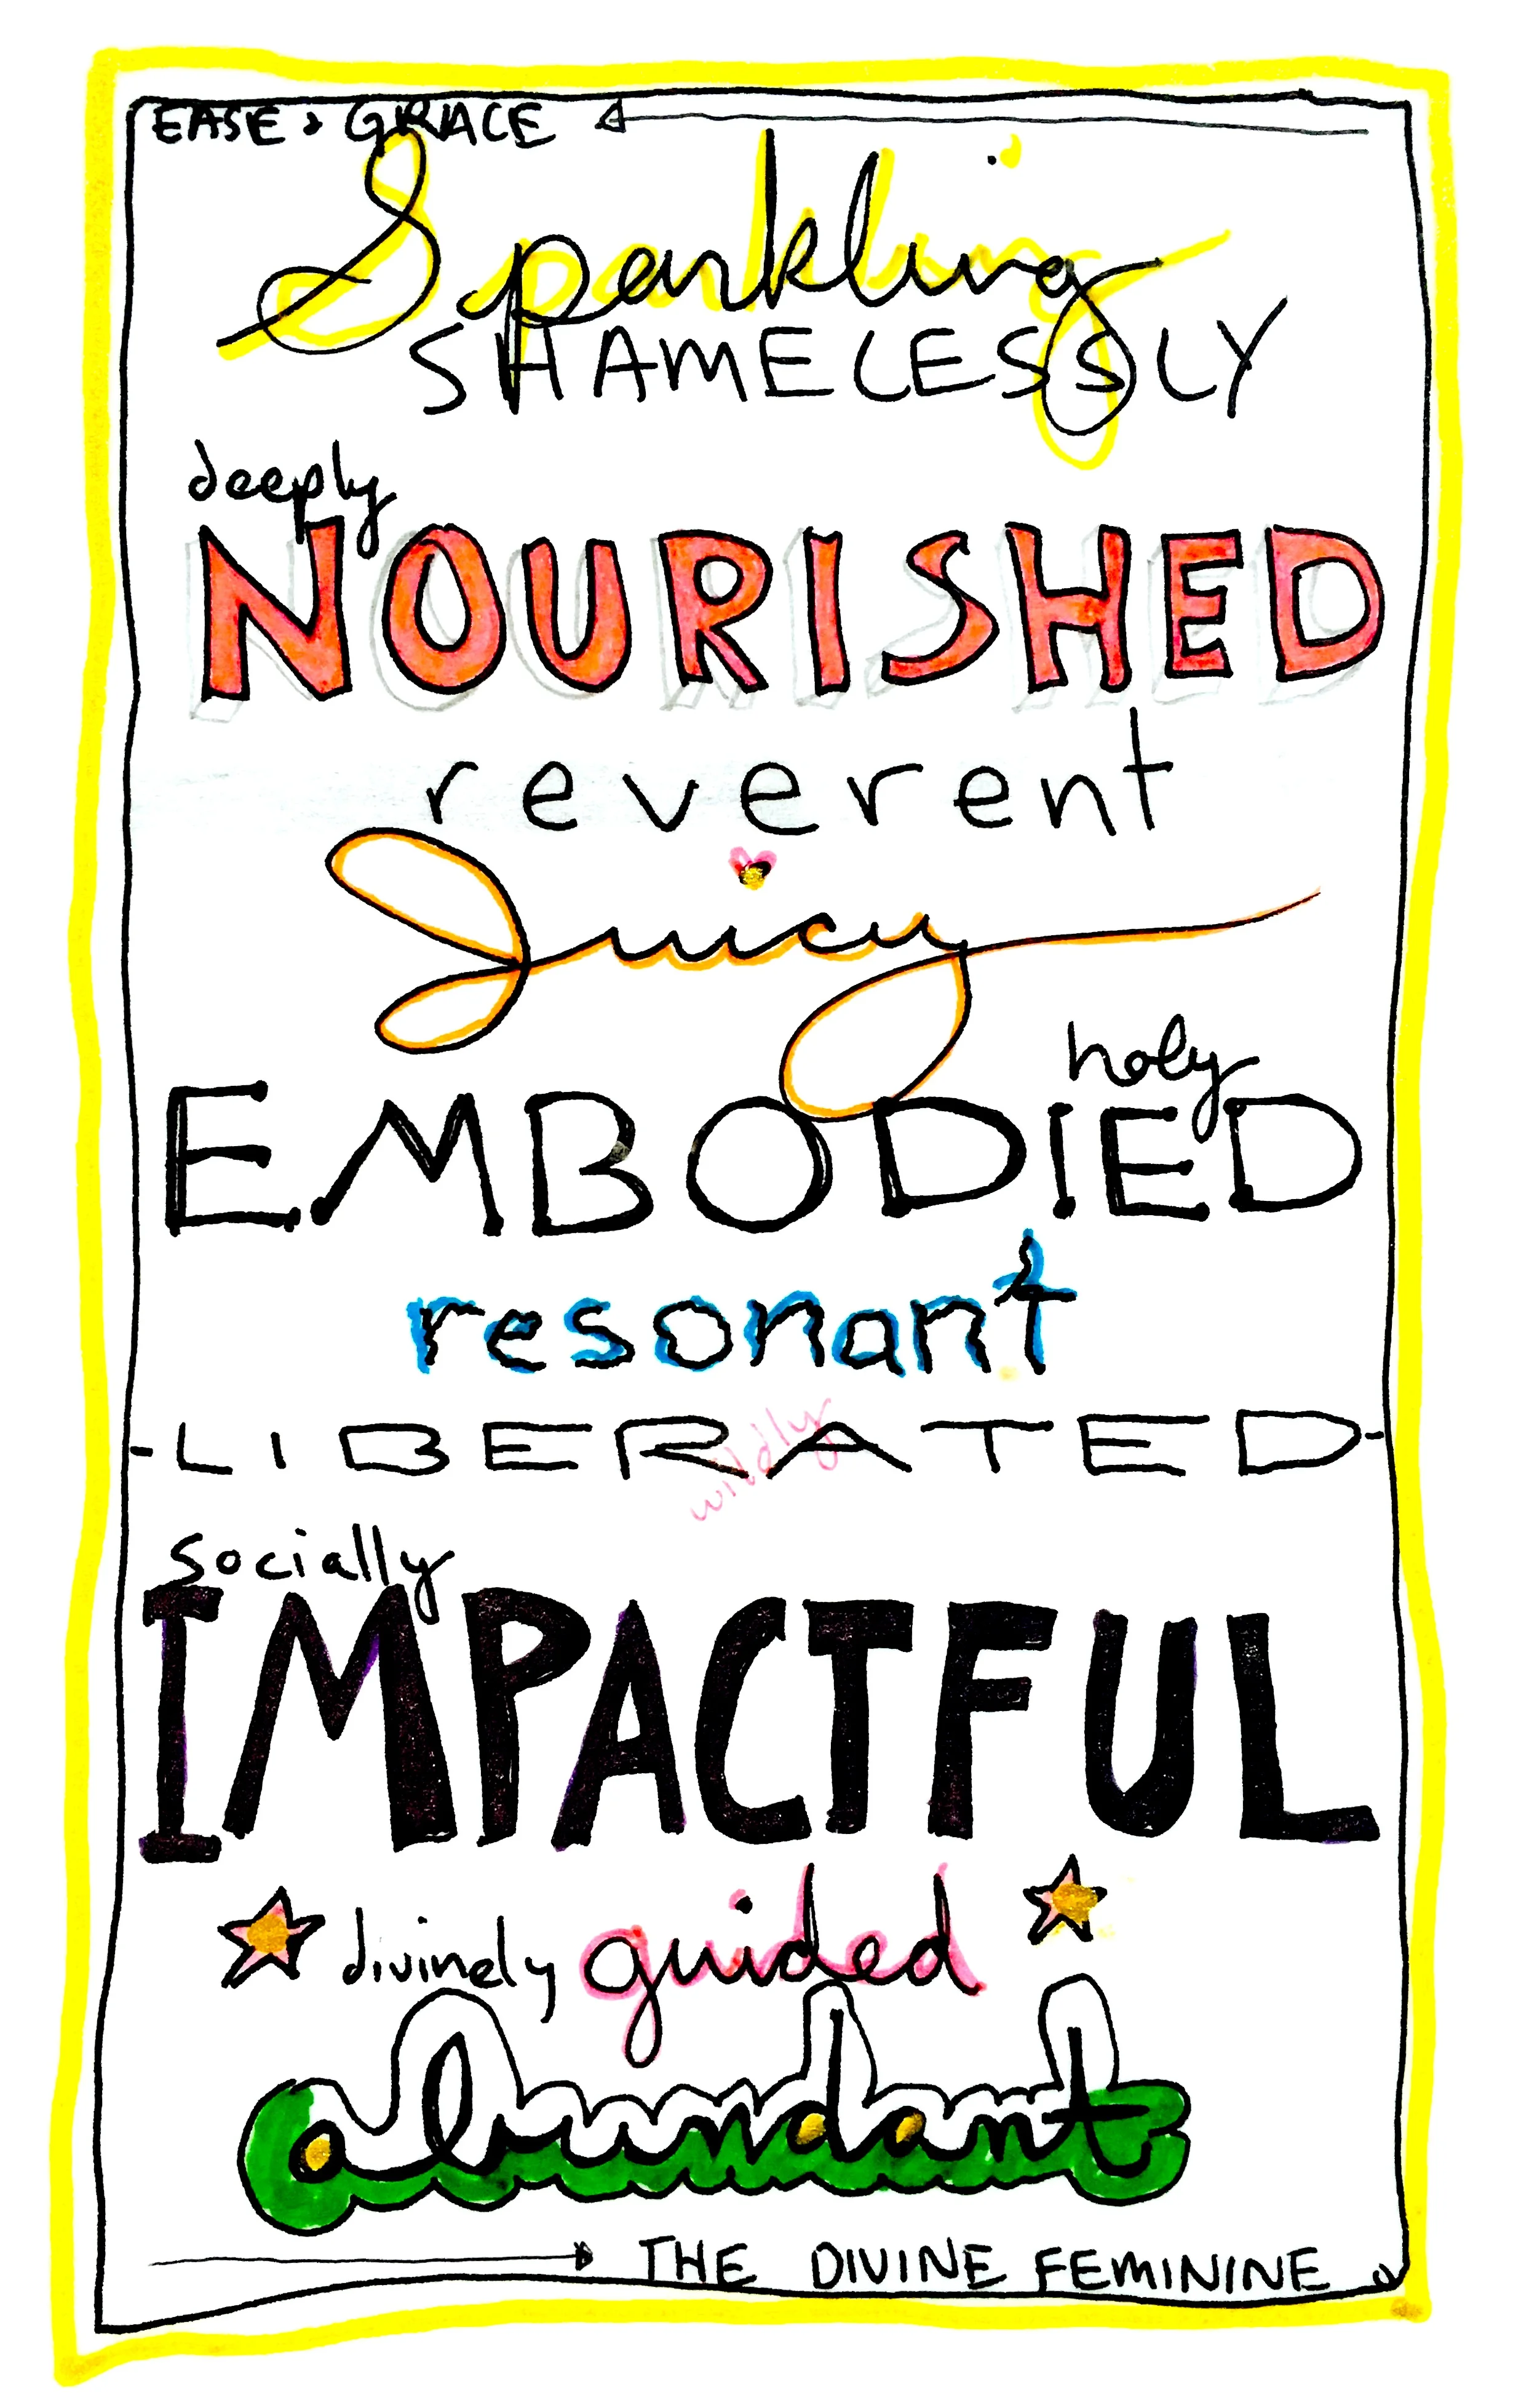 EASE & GRACE
Sparkling
SHAMELESSLY
deeply
NOURISHED
reverent
Juicy
holy
EMBODIED
resonant
-LIBERATED-
wildly
socially
IMPACTFUL
divinely guided
abundant
THE DIVINE FEMININE